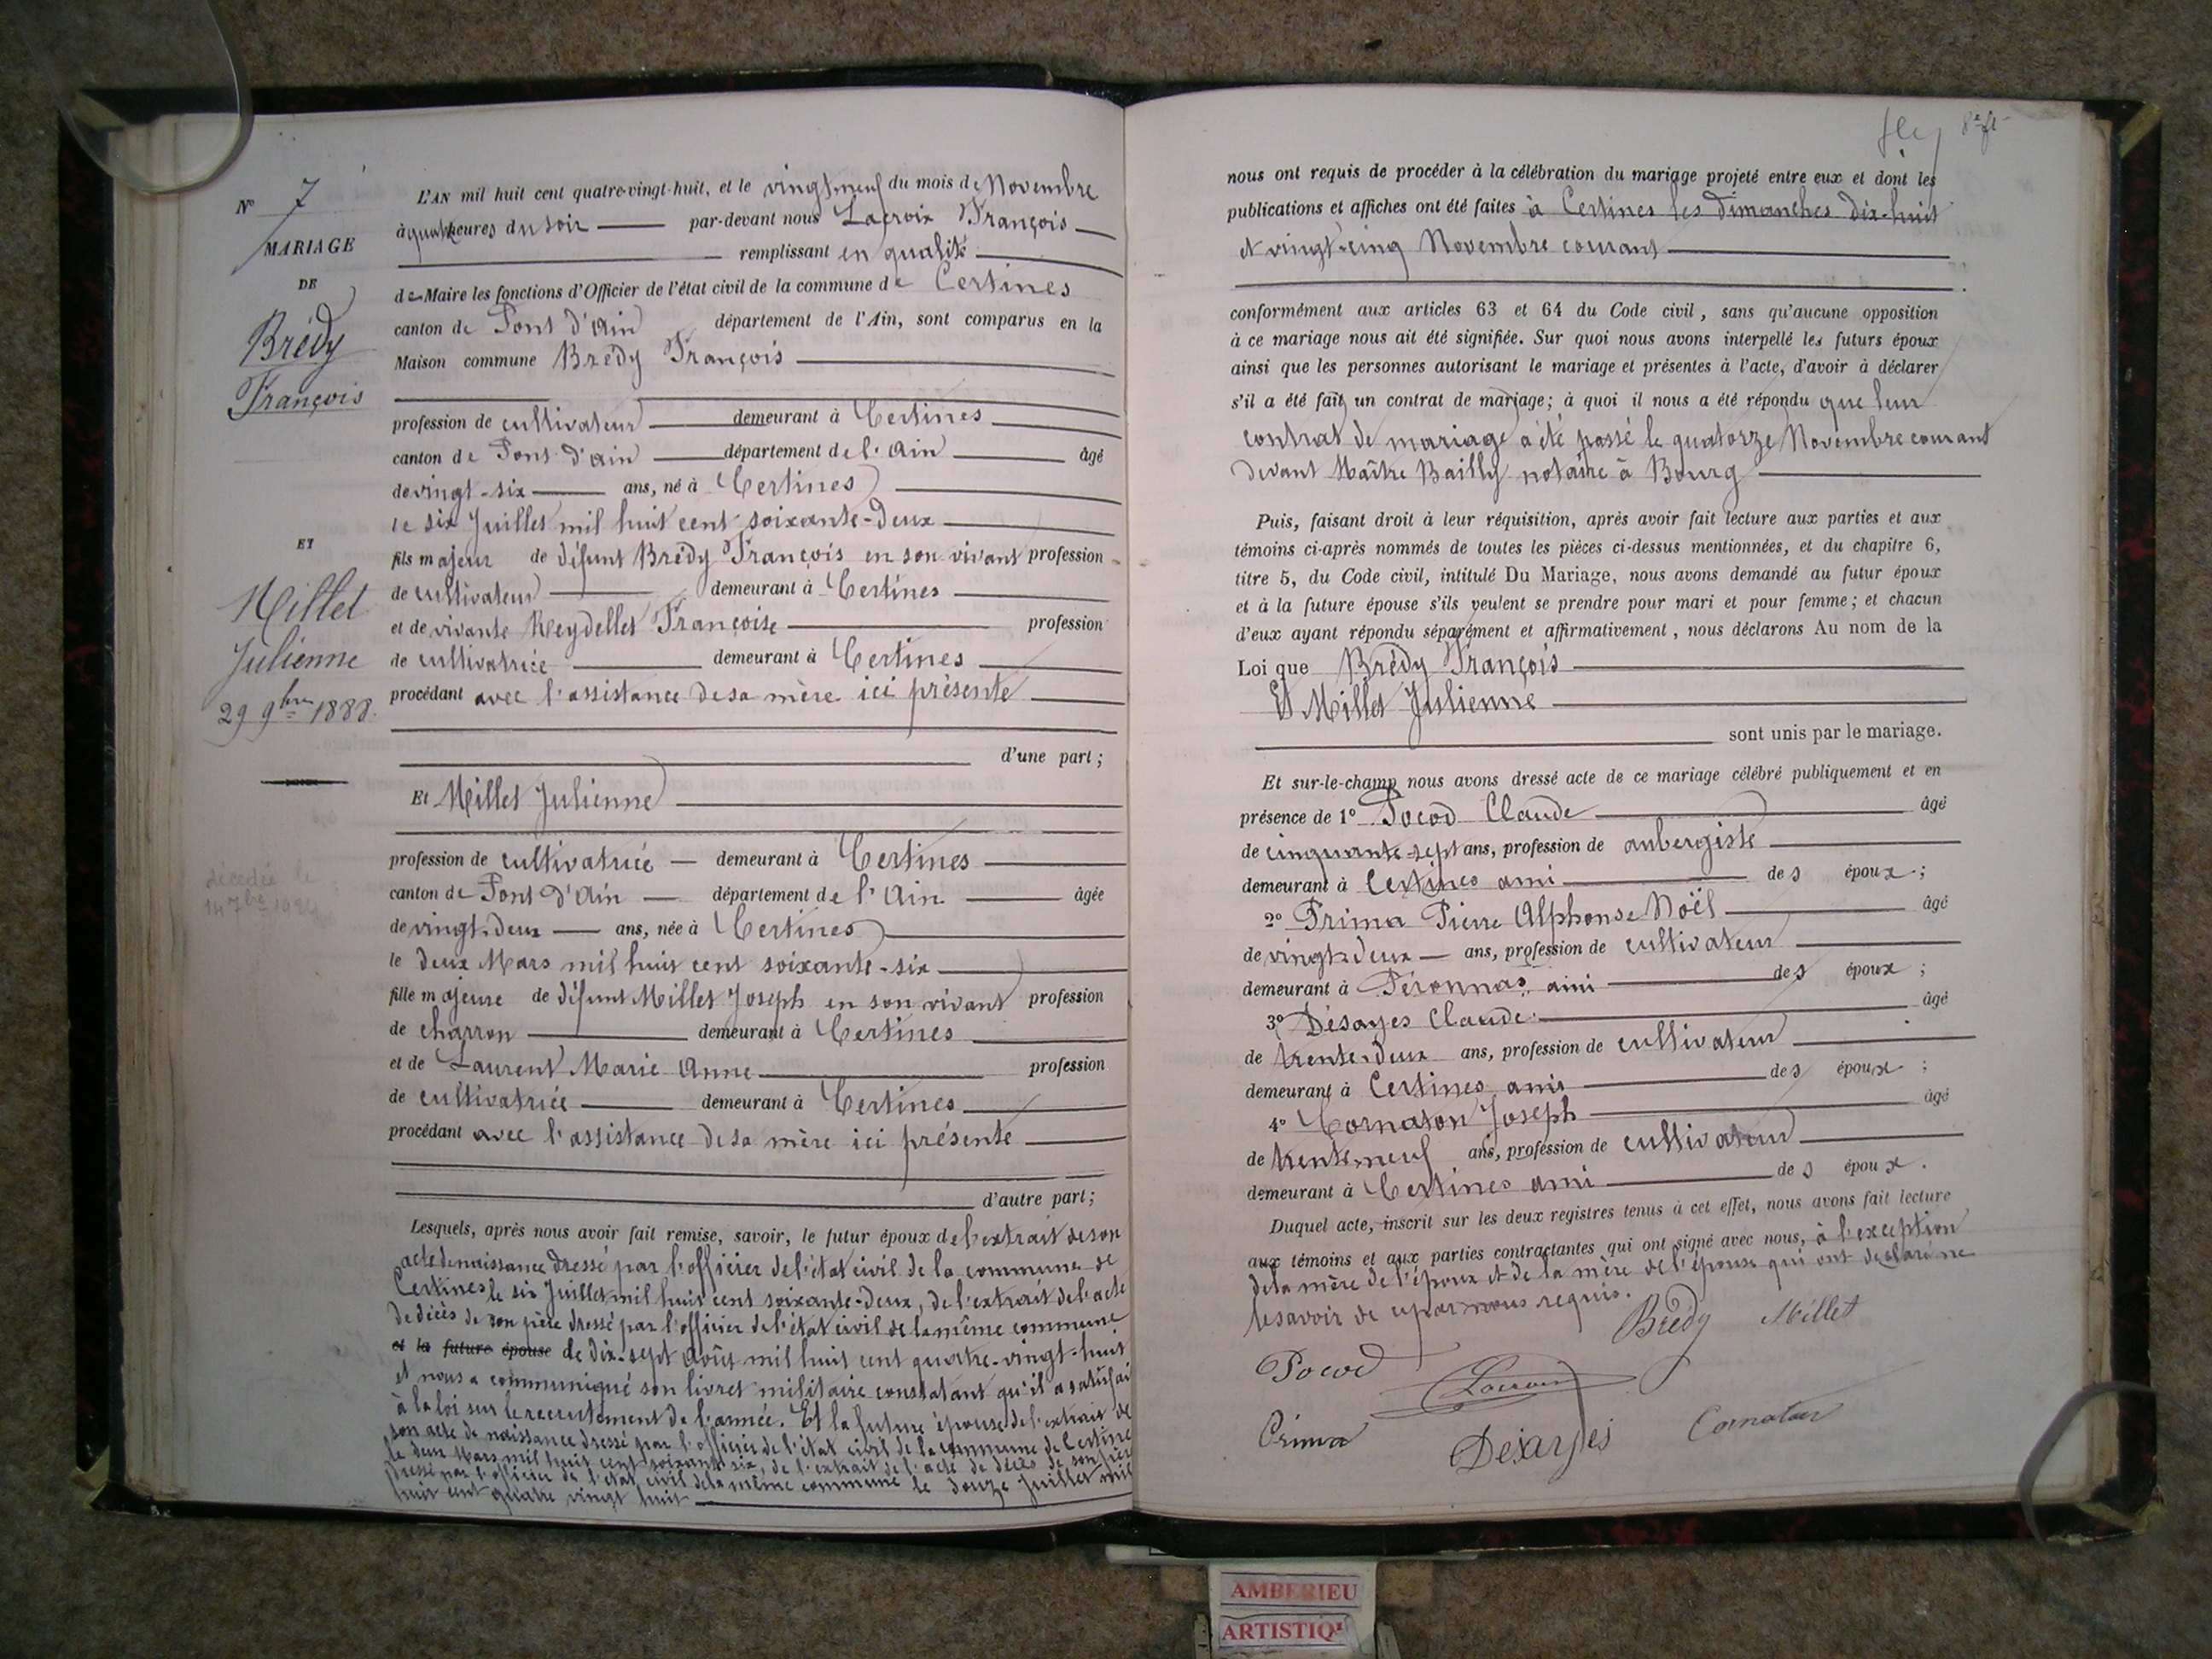 N° 7
MARIAGE
DE
Brédy
François
ET
Millet
Julienne
29 9bre 1888.
décédée le
14 7bre 1924
L'AN mil huit cent quatre-vingt-huit, et le vingt-neuf du mois de Novembre
à quatre heures du soir par-devant nous Lacroix François
remplissant en qualité
de Maire les fonctions d'Officier de l'état civil de la commune de Certines
canton de Pont d'Ain département de l'Ain, sont comparus en la
Maison commune Brédy François
profession de cultivateur demeurant à Certines
canton de Pont d'Ain département de l'Ain âgé
de vingt-six ans, né à Certines
le six Juillet mil huit cent soixante-deux
fils majeur de défunt Brédy François en son vivant profession
de cultivateur demeurant à Certines
et de vivante Reydellet Françoise profession
de cultivatrice demeurant à Certines
procédant avec l'assistance de sa mère ici présente
d'une part;
Et Millet Julienne
profession de cultivatrice demeurant à Certines
canton de Pont d'Ain département de l'Ain âgée
de vingt-deux ans, née à Certines
le deux Mars mil huit cent soixante-six
fille majeure de défunt Millet Joseph en son vivant profession
de charron demeurant à Certines
et de Laurent Marie Anne profession
de cultivatrice demeurant à Certines
procédant avec l'assistance de sa mère ici présente
d'autre part;
Lesquels, après nous avoir fait remise, savoir, le futur époux de l'extrait de son
acte de naissance dressé par l'officier de l'état civil de la commune de
Certines le six Juillet mil huit cent soixante-deux, de l'extrait de l'acte
de décès de son père dressé par l'officier de l'état civil de la même commune
et la future épouse le dix-sept Août mil huit cent quatre-vingt-huit
et nous a communiqué son livret militaire constatant qu'il a satisfait
à la loi sur le recrutement de l'armée. Et la future épouse de l'extrait de
son acte de naissance dressé par l'officier de l'état civil de la commune de Certines
le deux Mars mil huit cent soixante six, de l'extrait de l'acte de décès de son père
dressé par l'officier de l'état civil de la même commune le douze Juillet mil
huit cent quatre vingt huit
8e ft
nous ont requis de procéder à la célébration du mariage projeté entre eux et dont les
publications et affiches ont été faites à Certines les dimanches dix-huit
et vingt-cinq Novembre courant
conformément aux articles 63 et 64 du Code civil, sans qu'aucune opposition
à ce mariage nous ait été signifiée. Sur quoi nous avons interpellé les futurs époux
ainsi que les personnes autorisant le mariage et présentes à l'acte, d'avoir à déclarer
s'il a été fait un contrat de mariage; à quoi il nous a été répondu que leur
contrat de mariage a été passé le quatorze Novembre courant
devant Maître Bailly notaire à Bourg
Puis, faisant droit à leur réquisition, après avoir fait lecture aux parties et aux
témoins ci-après nommés de toutes les pièces ci-dessus mentionnées, et du chapitre 6,
titre 5, du Code civil, intitulé Du Mariage, nous avons demandé au futur époux
et à la future épouse s'ils veulent se prendre pour mari et pour femme; et chacun
d'eux ayant répondu séparément et affirmativement, nous déclarons Au nom de la
Loi que Brédy François
Et Millet Julienne
sont unis par le mariage.
Et sur-le-champ nous avons dressé acte de ce mariage célébré publiquement et en
présence de 1° Pocod Claude âgé
de cinquante-sept ans, profession de aubergiste
demeurant à Certines ami des époux;
2° Prima Pierre Alphonse Noël âgé
de vingt-deux ans, profession de cultivateur
demeurant à Péronnas ami des époux;
3° Désayes Claude âgé
de trente-deux ans, profession de cultivateur
demeurant à Certines ami des époux;
4° Cornaton Joseph âgé
de trente-neuf ans, profession de cultivateur
demeurant à Certines ami des époux.
Duquel acte, inscrit sur les deux registres tenus à cet effet, nous avons fait lecture
aux témoins et aux parties contractantes qui ont signé avec nous, à l'exception
de la mère de l'époux et de la mère de l'épouse qui ont déclaré ne
le savoir de ce par nous requis.
Brédy Millet
Pocod Lacroix
Prima Desayes Cornaton
AMBERIEU
ARTISTIQ